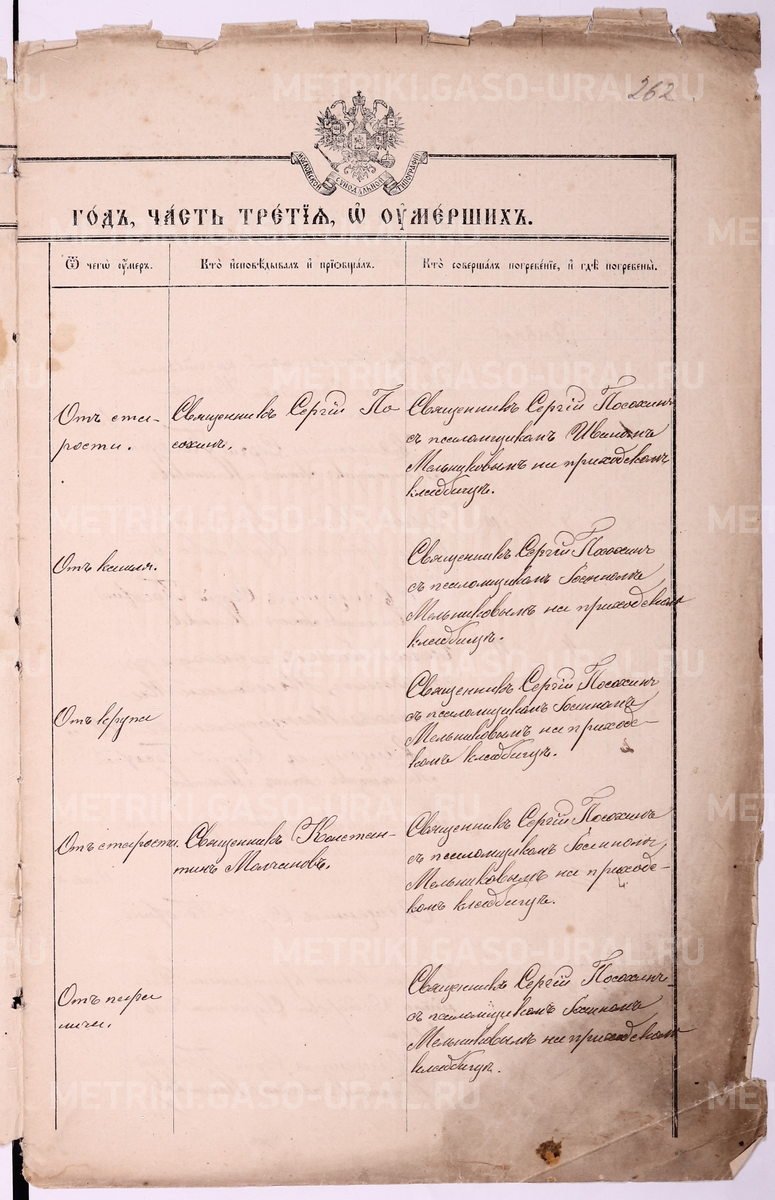 262
МОСКОВСКОЙ СѴНОДАЛЬНОЙ ТИПОГРАФІИ
ГО́ДЪ, ЧА́СТЬ ТРЕ́ТІѦ, Ѡ҆ ОУ҆МЕ́РШИХЪ.
Ѿ чегѡ̀ оу҆́меръ.
Кто̀ и҆сповѣ́дывалъ и҆ прїѻбща́лъ.
Кто̀ соверша́лъ погребе́нїе, и҆ гдѣ̀ погребены̀.
Отъ ста-
рости.
Священникъ Сергій По-
сохинъ.
Священникъ Сергій Посохинъ
съ псаломщикомъ Иваномъ
Мельниковымъ на приходскомъ
кладбищѣ.
Отъ кашля.
Священникъ Сергій Посохинъ
съ псаломщикомъ
Мельниковымъ на приходскомъ
кладбищѣ.
Отъ крупа
Священникъ Сергій Посохинъ
съ псаломщикомъ
Мельниковымъ на приход-
комъ кладбищѣ.
Отъ старости.
Священникъ Констан-
тинъ Молчановъ.
Священникъ Сергій Посохинъ
съ псаломщикомъ
Мельниковымъ на приходс-
комъ кладбищѣ.
Отъ
Священникъ Сергій Посохинъ
съ псаломщикомъ
Мельниковымъ на приходскомъ
кладбищѣ.
METRIKI.GASO-URAL.RU